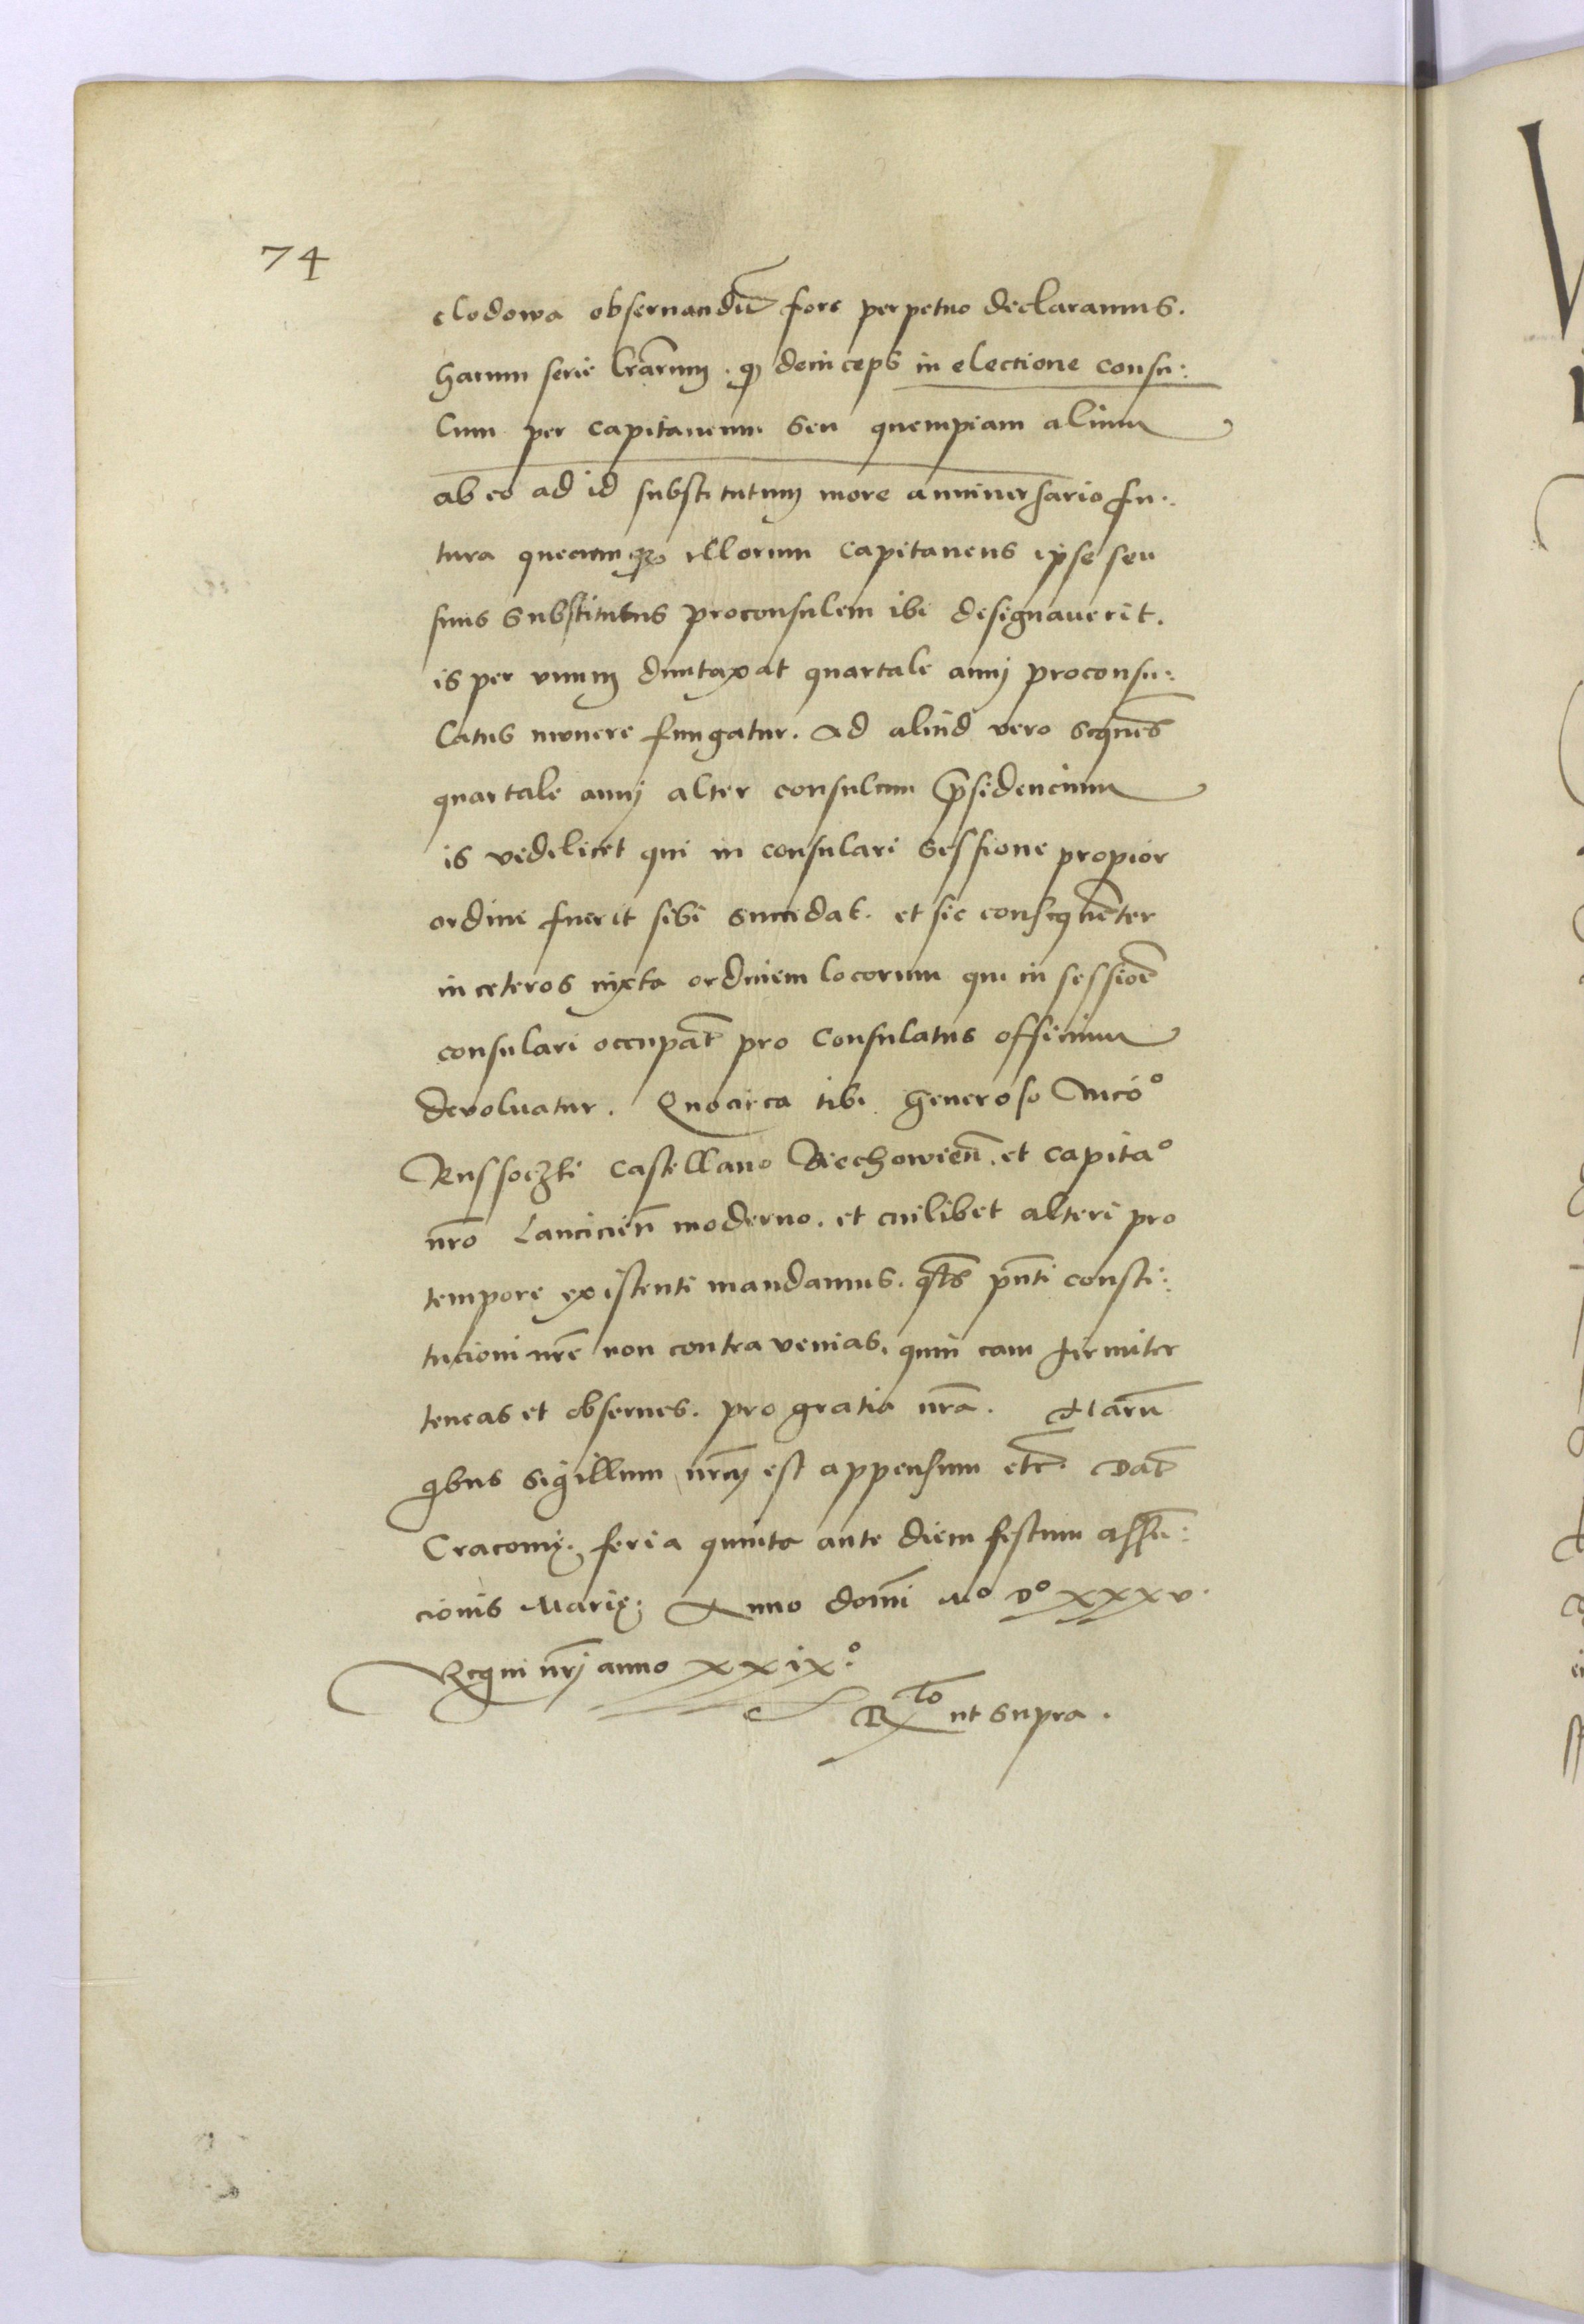 74
clodowa obseruandū fore perpetuo declaramus.
harum serie lr̄arum. q deinceps in electione consu:
lum per capitaneum seu quempiam alium
ab eo ad id substitutum more anniuersario fu:
tura quecumq illorum capitaneus ipse seu
suus substitutus proconsulem ibi designauerit.
is per vnum duntaxat quartale annj proconsu:
latus munere fungatur. Ad aliud vero seqnēs
quartale annj alter consulum p̄sidencium
is videlicet qui in consulari sessione propior
ordini fuerit sibi succedat. et sic conseqnēter
in ceteros iuxta ordinem locorum que in sessioē
consulari occupāt pro consulatus officium
devoluatur. Quocirca tibi generoso Nicoº
Russoczki Castellano Biechowieñ. et capitaº
nr̄o Lancicieñ moderno. et cuilibet alteri pro
tempore existenti mandamus. qtēs pn̄ti consti:
tucioni nr̄e non contra venias. quin eam firmiter
teneas et obserues. pro gratia nr̄a. Harū
qbus sigillum nr̄m est appensum etc̄. Dat̄
Cracouię. feria quinta ante diem festum assū:
cionis Marię. Anno domī Mº Dº xxxv.
Regni nr̄j anno xxixº.
Rlō ut supra.